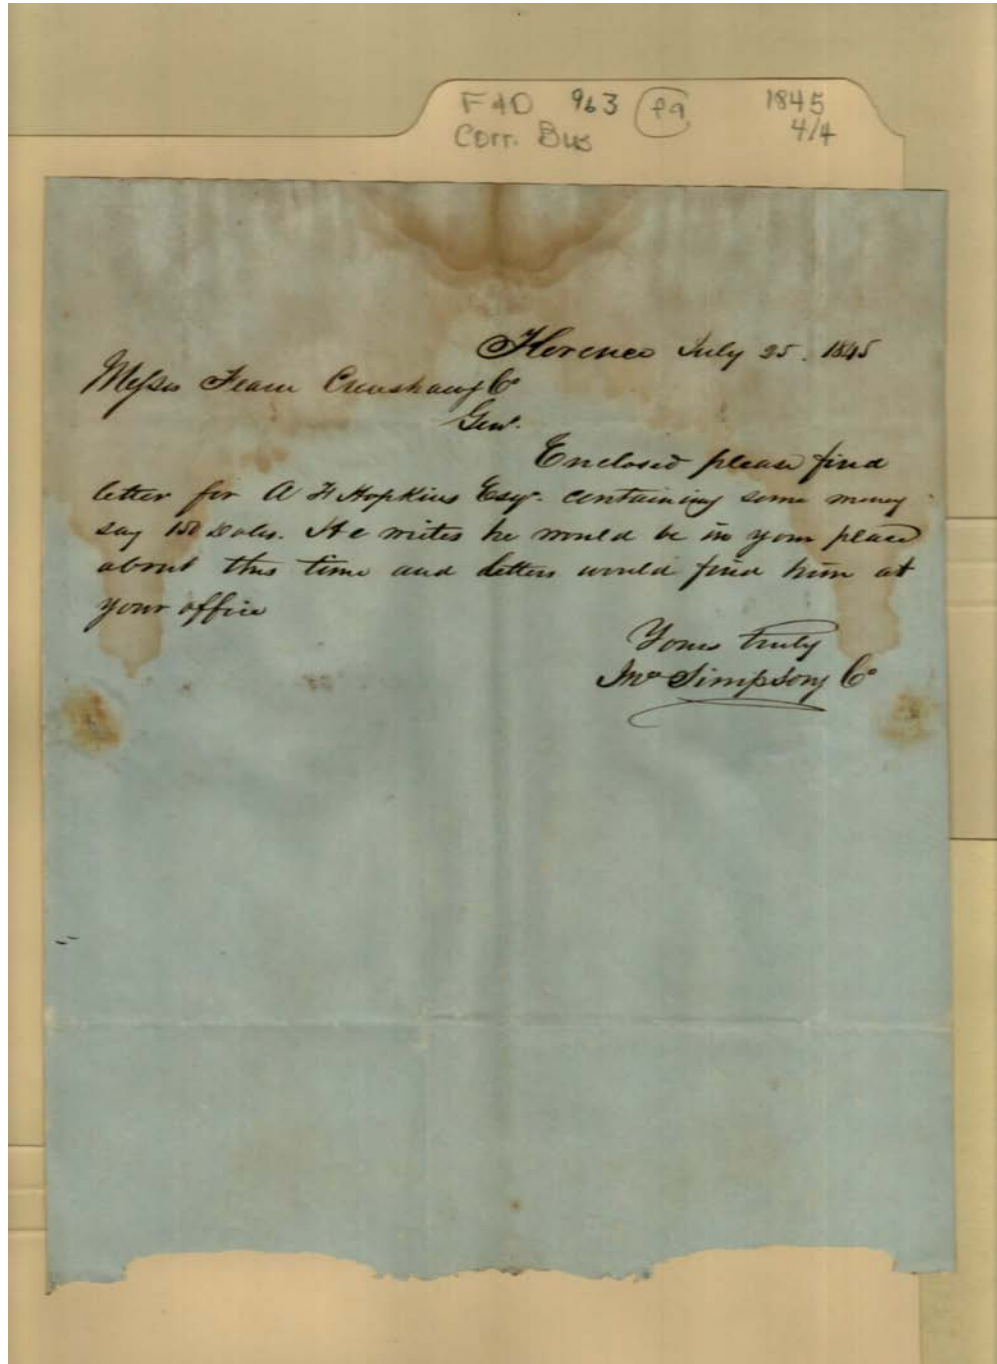 F4D 963 P9 1845
Corr. Bus 4/4
Florence July 25. 1845
Messrs Fearn Crenshaw & Co
Gent.
Enclosed please find
letter for A F Hopkins Esqr. containing some money
say 150 Dolls. He writes he would be in your place
about this time and letters would find him at
your office
Yours truly
Jno Simpson & Co